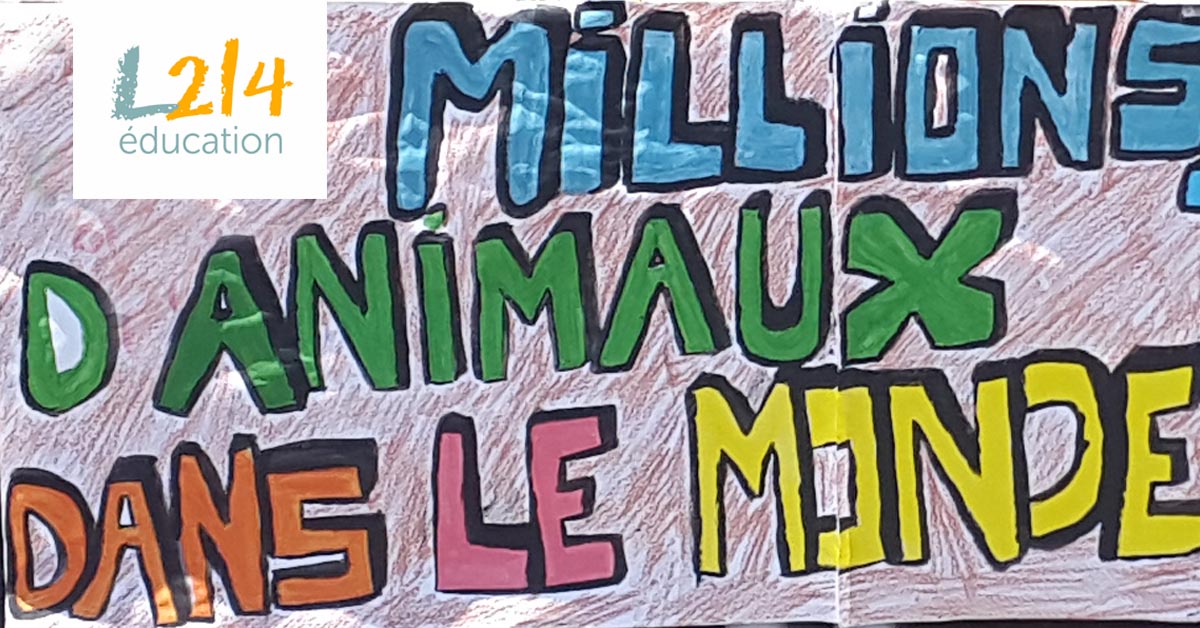 L214
éducation
MiLLiONS
D ANiMAUX
DANS LE MONDE